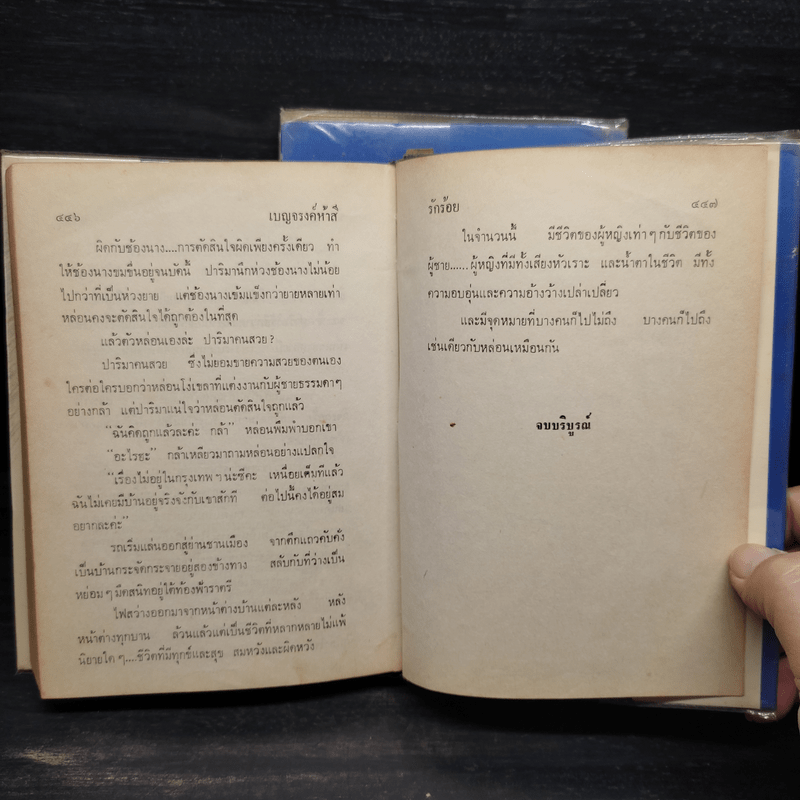 ๔๔๖ เบญจรงค์ห้าสี
ผิดกับช้องนาง....การตัดสินใจผิดเพียงครั้งเดียว ทำ
ให้ช้องนางขมขื่นอยู่จนบัดนี้ ปาริมานึกห่วงช้องนางไม่น้อย
ไปกว่าที่เป็นห่วงยาย แต่ช้องนางเข้มแข็งกว่ายายหลายเท่า
หล่อนคงจะตัดสินใจได้ถูกต้องในที่สุด
แล้วตัวหล่อนเองล่ะ ปาริมาคนสวย?
ปาริมาคนสวย ซึ่งไม่ยอมขายความสวยของตนเอง
ใครต่อใครบอกว่าหล่อนโง่เขลาที่แต่งงานกับผู้ชายธรรมดาๆ
อย่างกล้า แต่ปาริมาแน่ใจว่าหล่อนตัดสินใจถูกแล้ว
“ฉันคิดถูกแล้วละค่ะ กล้า” หล่อนพึมพำบอกเขา
“อะไรฮะ” กล้าเหลียวมาถามหล่อนอย่างแปลกใจ
“เรื่องไม่อยู่ในกรุงเทพ ฯ น่ะซีคะ เหนื่อยเต็มทีแล้ว
ฉันไม่เคยมีบ้านอยู่จริงจังกับเขาสักที ต่อไปนี้คงได้อยู่สม
อยากละค่ะ”
รถเริ่มแล่นออกสู่ย่านชานเมือง จากตึกแถวคับคั่ง
เป็นบ้านกระจัดกระจายอยู่สองข้างทาง สลับกับที่ว่างเป็น
หย่อม ๆ มืดสนิทอยู่ใต้ท้องฟ้าราตรี
ไฟสว่างออกมาจากหน้าต่างบ้านแต่ละหลัง หลัง
หน้าต่างทุกบาน ล้วนแล้วแต่เป็นชีวิตที่หลากหลายไม่แพ้
นิยายใด ๆ....ชีวิตที่มีทุกข์และสุข สมหวังและผิดหวัง
รักร้อย ๔๔๗
ในจำนวนนี้ มีชีวิตของผู้หญิงเท่า ๆ กับชีวิตของ
ผู้ชาย......ผู้หญิงที่มีทั้งเสียงหัวเราะ และน้ำตาในชีวิต มีทั้ง
ความอบอุ่นและความอ้างว้างเปล่าเปลี่ยว
และมีจุดหมายที่บางคนก็ไปไม่ถึง บางคนก็ไปถึง
เช่นเดียวกับหล่อนเหมือนกัน
จบบริบูรณ์